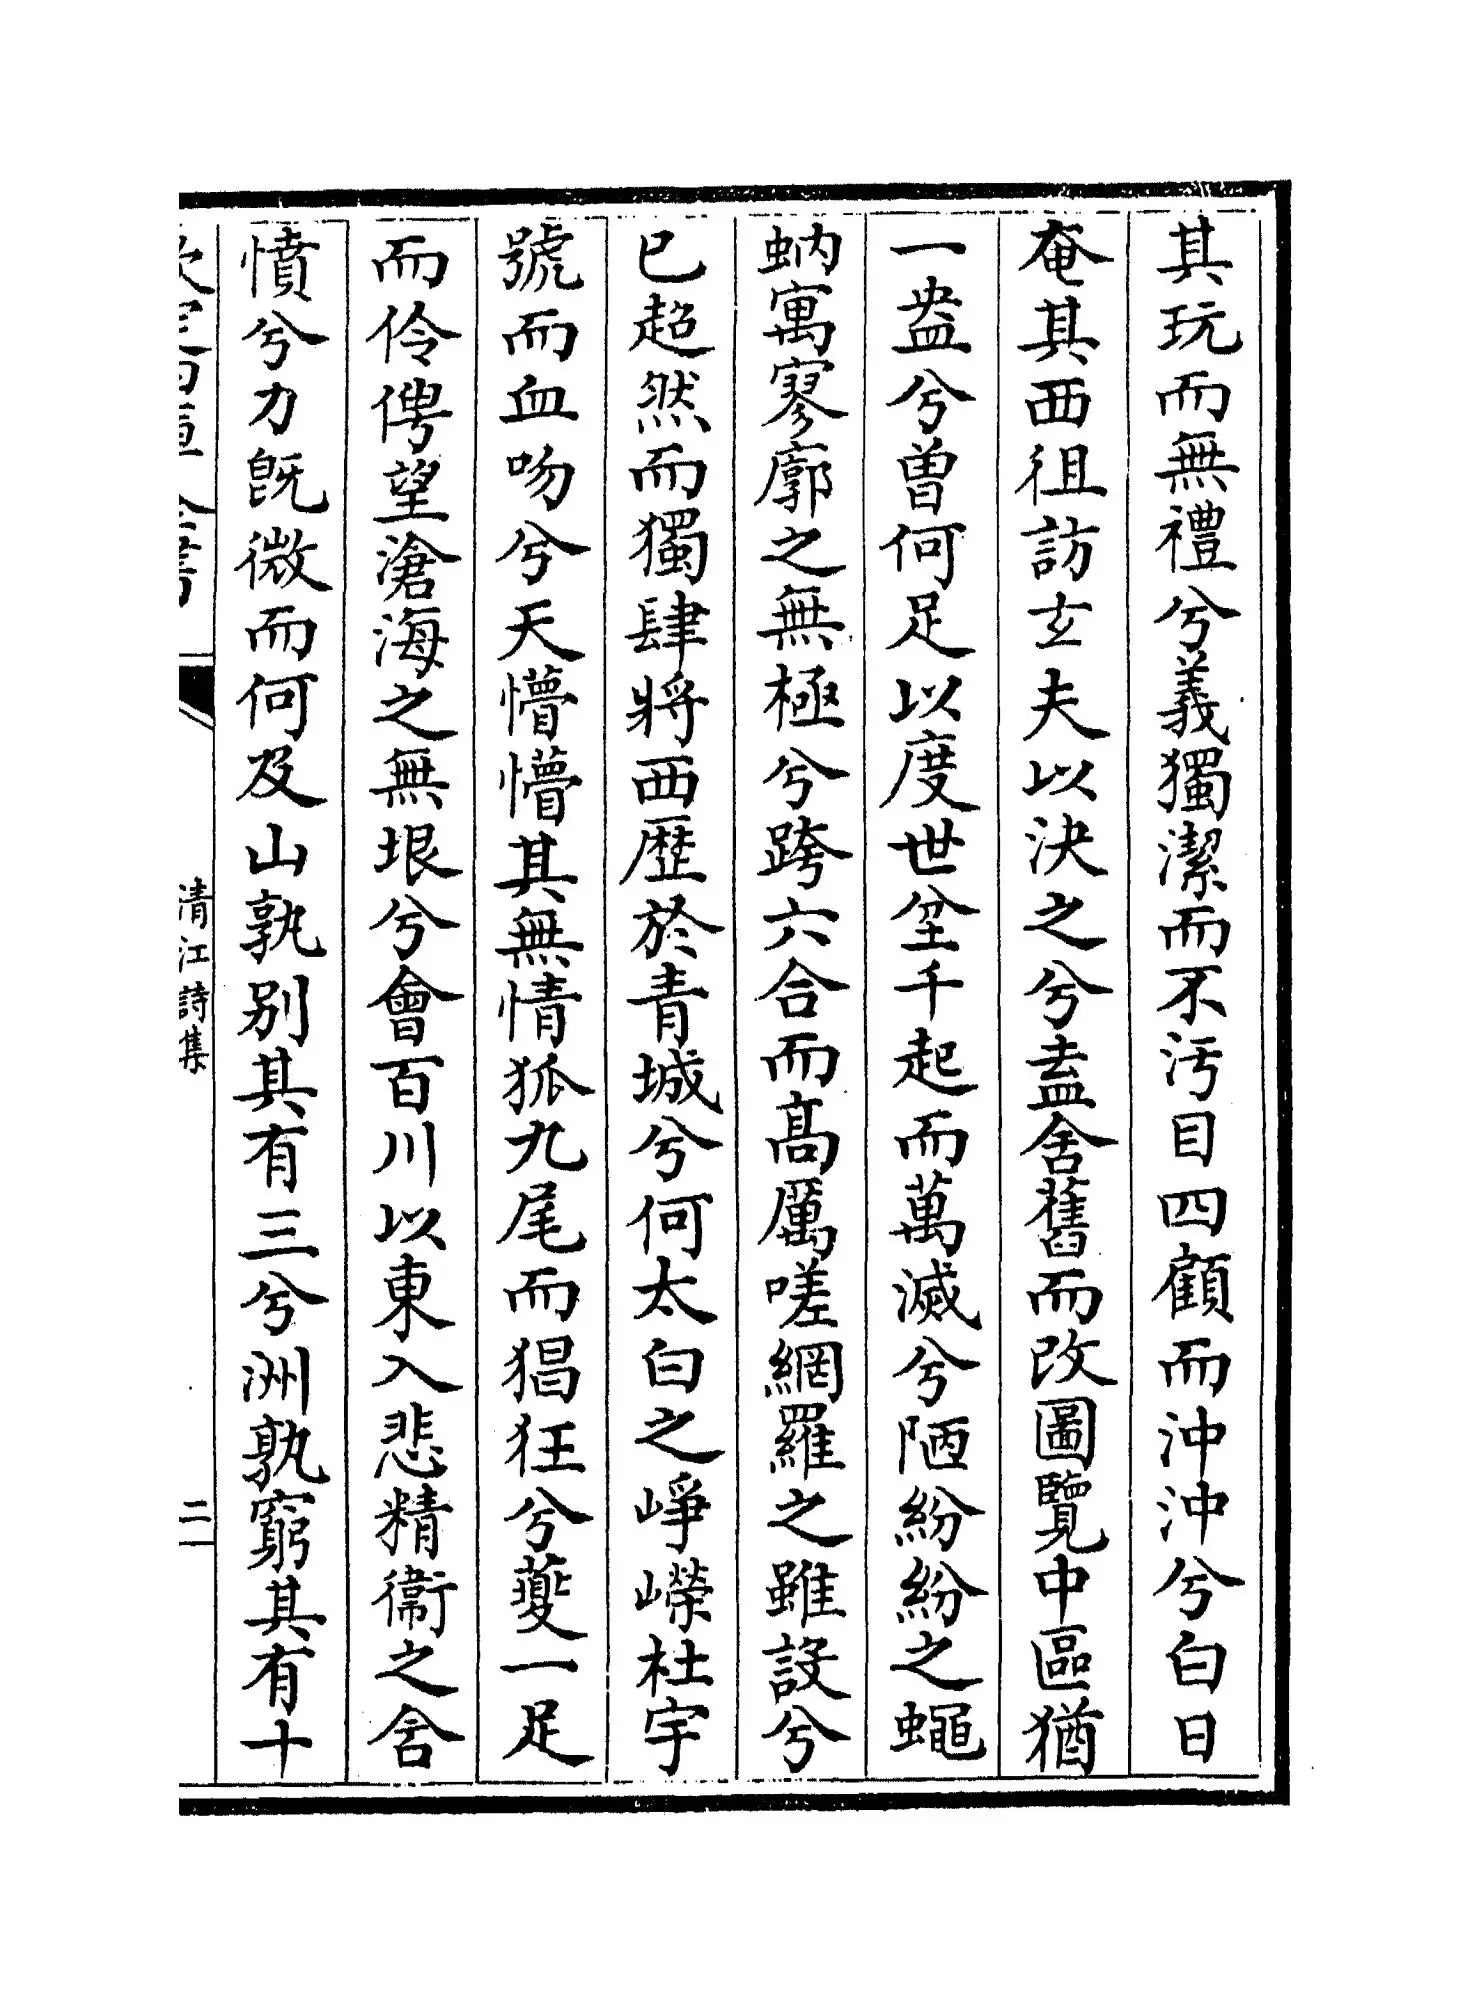 其玩而無禮兮義獨潔而不汚目四顧而沖沖兮白日
奄其西徂訪玄夫以決之兮盍舍舊而改圖覽中區猶
一盎兮曾何足以度世坌千起而萬滅兮陋紛紛之蠅
蚋寓寥廓之無極兮跨六合而髙厲嗟網羅之雖設兮
已超然而獨肆將西歴於青城兮何太白之崢嶸杜宇
號而血吻兮天懵懵其無情狐九尾而猖狂兮夔一足
而伶俜望滄海之無垠兮會百川以東入悲精衞之含
憤兮力旣微而何及山孰别其有三兮洲孰窮其有十
欽定四庫全書
清江詩集
二